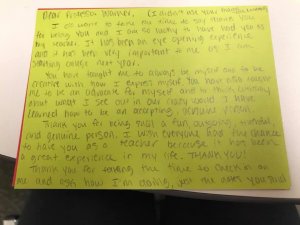 Dear Professor Warner, (I didn't use
I do want to take the time to say thank you
for being you and I am so lucky to have had you as
my teacher. It has been an eye opening experience
and it has been very important to me as I am
starting college next year.
You have taught me to always be myself and to be
creative with how I express myself. You have also taught
me to be an advocate for myself and to think critically
about what I see out in our crazy world. I have
learned how to be an accepting, genuine person.
Thank you for being such a fun, outgoing, cheerful,
and genuine person. I wish everyone had the chance
to have you as a teacher because it has been
a great experience in my life. THANK YOU!
Thank you for taking the time to check in on
me and ask how I'm doing, just the notes you said